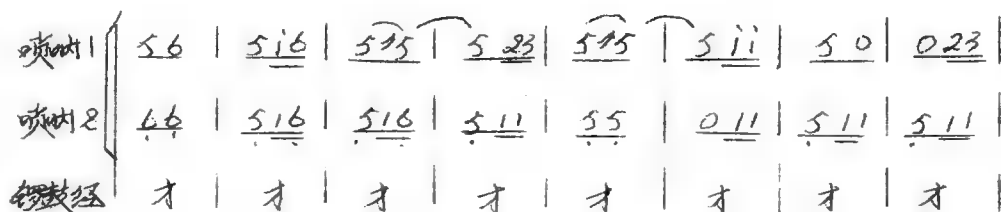 唢呐1 56 | 5i̇6 | 5i̇5 | 5 23 | 5i̇5 | 5 i̇i̇ | 5 0 | 0 23 |
唢呐2 6̣6̣ | 5̣16̣ | 5̣16̣ | 5̣ 11 | 5̣5̣ | 0 11 | 5̣ 11 | 5̣ 11 |
锣鼓经 才 | 才 | 才 | 才 | 才 | 才 | 才 | 才 |